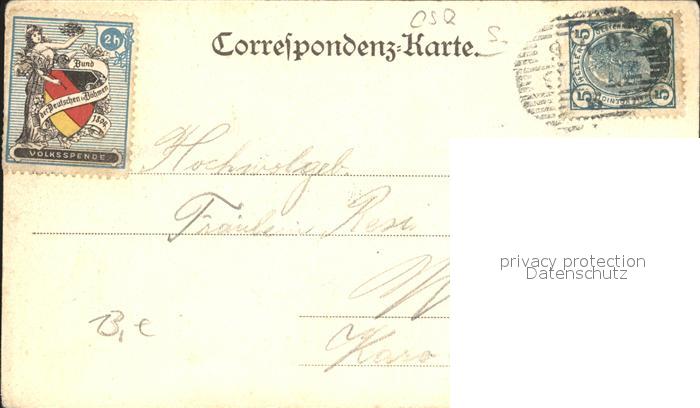 CSQ
S
2h
Bund
der Deutschen in Böhmen
1894
VOLKSSPENDE
Correspondenz-Karte.
5 HELLER 5
5 5
Hochwolgeb.
Fräulein Resi
W
Karo
B, e
privacy protection
Datenschutz